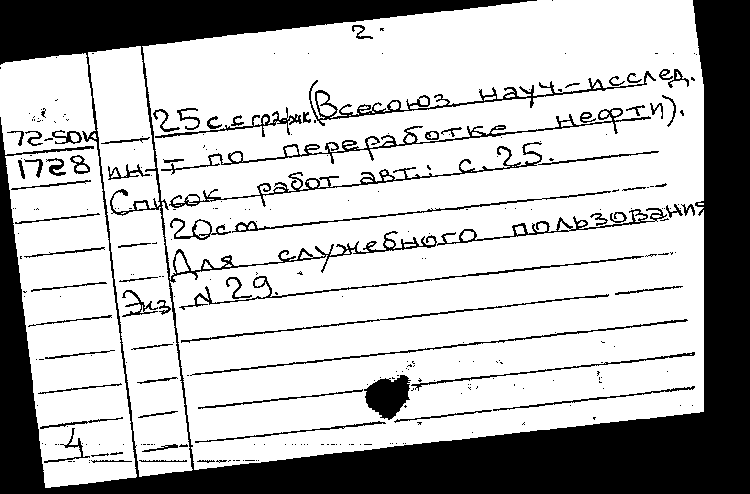 2.
25 с. с график. (Всесоюз. науч.-исслед.
72-50к
1728
ин-т по переработке нефти).
Список работ авт.: с. 25.
20 cm.
Для служебного пользования
Экз. N 29.
4